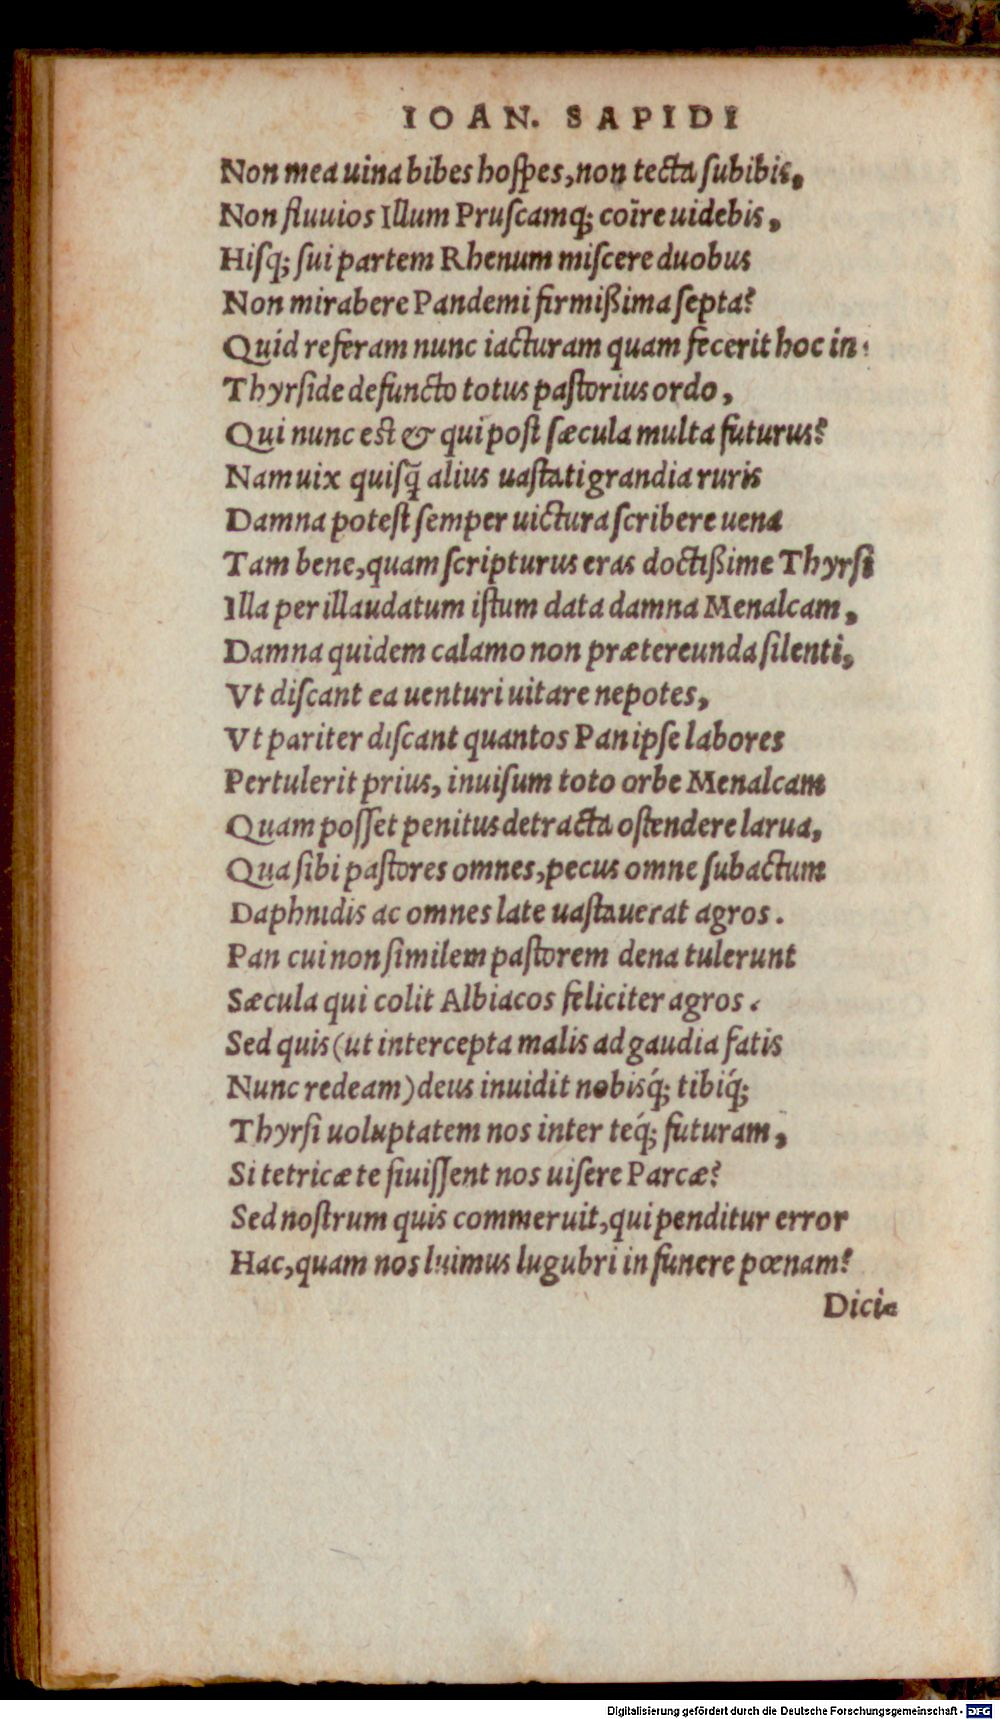 IOAN. SAPIDI
Non mea uina bibes hoſpes, non tecta ſubibis,
Non fluuios Illum Pruſcamq; coīre uidebis,
Hiſq; ſui partem Rhenum miſcere duobus
Non mirabere Pandemi firmißima ſepta?
Quid referam nunc iacturam quam fecerit hoc in
Thyrſide defuncto totus paſtorius ordo,
Qui nunc est & qui poſt ſæcula multa futurus?
Nam uix quiſq̃ alius uaſtati grandia ruris
Damna poteſt ſemper uictura ſcribere uena
Tam bene, quam ſcripturus eras doctißime Thyrſi
Illa per illaudatum iſtum data damna Menalcam,
Damna quidem calamo non prætereunda ſilenti,
Vt diſcant ea uenturi uitare nepotes,
Vt pariter diſcant quantos Pan ipſe labores
Pertulerit prius, inuiſum toto orbe Menalcam
Quam poſſet penitus detracta oſtendere larua,
Qua ſibi paſtores omnes, pecus omne ſubactum
Daphnidis ac omnes late uaſtauerat agros.
Pan cui non ſimilem paſtorem dena tulerunt
Sæcula qui colit Albiacos feliciter agros.
Sed quis (ut intercepta malis ad gaudia fatis
Nunc redeam) deus inuidit nobisq́; tibiq́;
Thyrſi uoluptatem nos inter teq́; futuram,
Si tetricæ te ſiuiſſent nos uiſere Parcæ?
Sed noſtrum quis commeruit, qui penditur error
Hac, quam nos luimus lugubri in funere pœnam?
Dici-
Digitalisierung gefördert durch die Deutsche Forschungsgemeinschaft - DFG